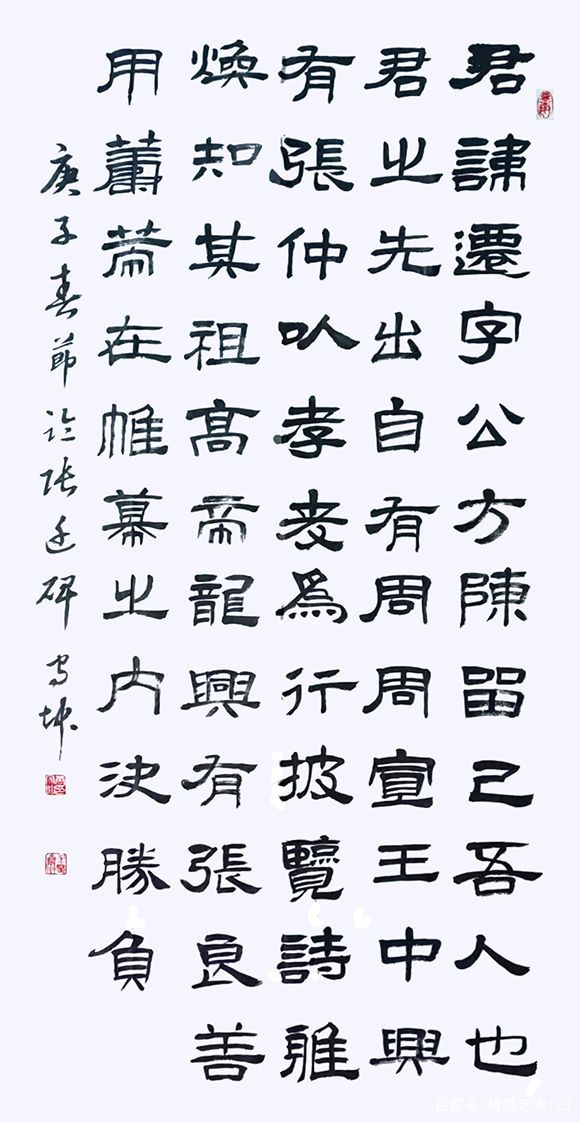 君諱遷字公方陳留己吾人也
君之先出自有周周宣王中興
有張仲以孝友為行披覽詩雅
煥知其祖高帝龍興有張良善
用籌策在帷幕之內決勝負
庚子春節臨張遷碑
百家号/楷墨艺术123